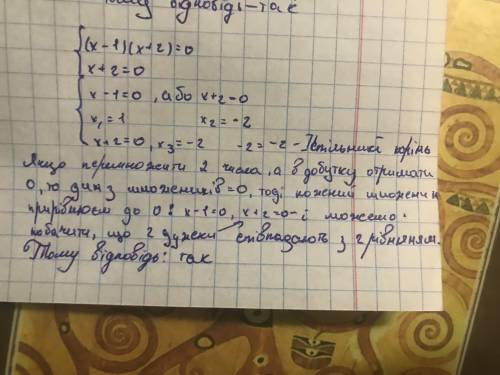 тому відповідь – так
(x-1)(x+2)=0
x+2=0
x-1=0, або x+2=0
x₁=1 x₂=-2
x+2=0, x₃=-2 -2=-2 - Іспільний корінь
Якщо перемножити 2 числа, а в добутку отримати
0, то один з множників=0, тоді кожний множник
прирівнюєм до 0: x-1=0, x+2=0 - і можемо
побачити, що 2 дужки співпадають з 2 рівнянням.
Тому відповідь: так